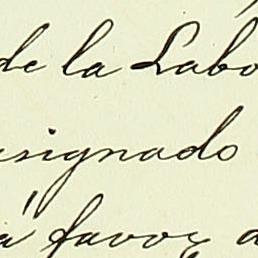 de la Labo
signado
á favor d